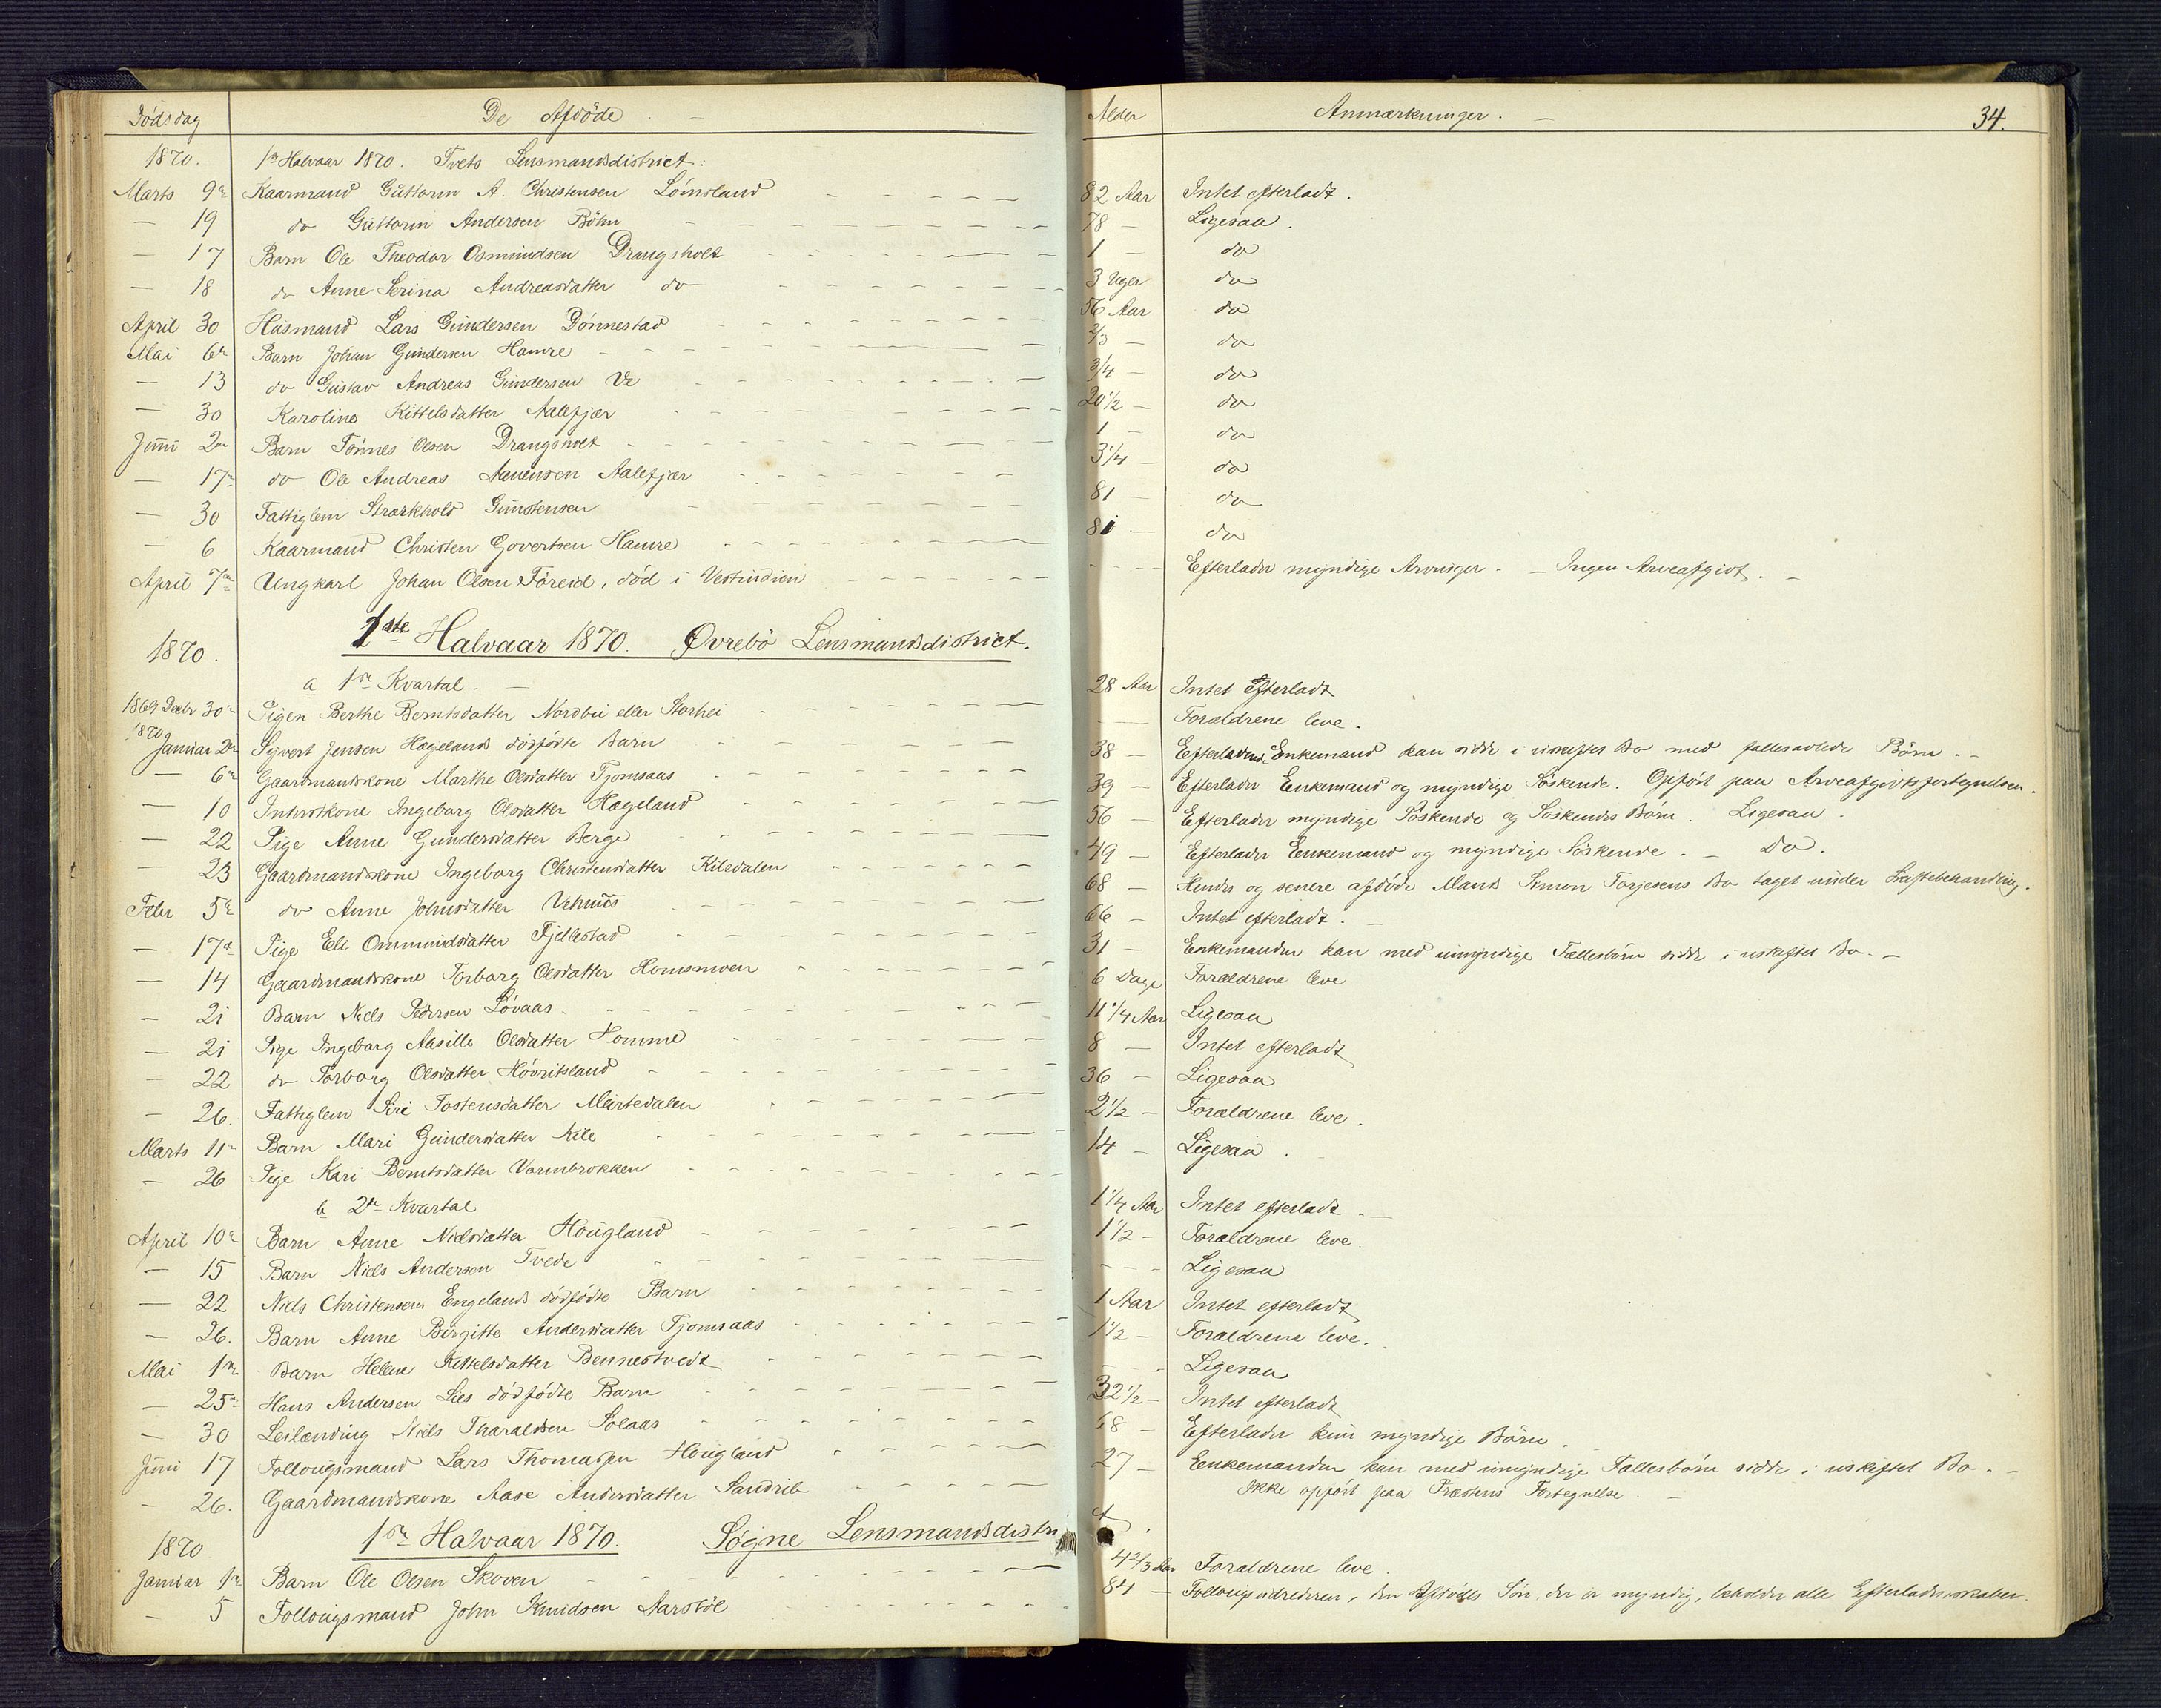 Dødsdag De Afdöde. Alder Anmærkninger. 34.
1870. 1ste Halvaar 1870. Tvets Lensmandsdistrict.
Marts 9de Kaarmand Guttorm A. Christensen Lömsland 82 Aar Intet efterladt.
— 19 do Guttorm Andersen Böhn 78 — Ligesaa.
— 17 Barn Ole Theodor Osmundsen Drangsholt 1 — do
— 18 do Anne Serina Andreasdatter do 3 Uger do
April 30 Husmand Lars Gundersen Dönnestad 56 Aar do
Mai 6te Barn Johan Gundersen Hamre 2/3 — do
— 13 do Gustav Andreas Gundersen Ve 3/4 — do
— 30 Karoline Kittelsdatter Aalefjær 20 1/2 — do
Juni 2den Barn Tönnes Olsen Drangsholt 1 — do
— 17de do Ole Andreas Aanensen Aalefjær 3 1/4 — do
— 30 Fattiglem Stærkhold Gunstensen 81 — do
— 6 Kaarmand Christen Govertsen Hamre 81 — do
April 7de Ungkarl Johan Olsen Föreid, död i Vestindien - - - Efterlader myndige Arvinger. — Ingen Arveafgivt. —
1870. 1ste Halvaar 1870. Øvrebö Lensmandsdistrict.
a 1ste Kvartal. —
1869 Decbr 30te Pigen Berthe Berntsdatter Nordbu eller Storhei 28 Aar Intet Efterladt
1870 Januar 2den Syvert Jensen Hægelands dödfödte Barn — Forældrene leve.
— 6te Gaardmandskone Marthe Olsdatter Tjomsaas 38 — Efterladende Enkemand kan sidde i uskiftet Bo med fællesavlede Börn. —
— 10 Inderstkone Ingeborg Olsdatter Hægeland 39 — Efterlader Enkemand og myndige Söskende. Opfört paa Arveafgivtsfortegnelsen.
— 22 Pige Anne Gundersdatter Berge 56 — Efterlader myndige Söskende og Söskendes Börn. Ligesaa.
— 23 Gaardmandskone Ingeborg Christensdatter Kilsdalen 49 — Efterlader Enkemand og myndige Söskende. — Do.
Febr 5te do Anne Johnsdatter Vehuus 68 — Hendes og senere afdöde Mands Simon Torjesens Bo taget under Skiftebehandling.
— 17de Pige Eli Ommundsdatter Fjellestad 66 — Intet efterladt. —
— 14 Gaardmandskone Torborg Olsdatter Homsmoen 31 — Enkemanden kan med umyndige Fællesbörn sidde i uskiftet Bo. —
— 21 Barn Niels Pedersen Lövaas 6 Dage Forældrene leve
— 21 Pige Ingeborg Aasille Olsdatter Homme 11 1/4 Aar Ligesaa
— 22 do Torborg Olsdatter Hövritsland 8 — Intet efterladt
— 26. Fattiglem Siri Tostensdatter Mørtedalen 36 — Ligesaa
Marts 11te Barn Mari Gundersdatter Kile 2 1/2 — Forældrene leve.
— 26 Pige Kari Berntsdatter Vormbrokken 14 — Ligesaa.
b 2det Kvartal
April 10de Barn Anne Nielsdatter Hougland 1 1/4 Aar Intet efterladt. —
— 15 Barn Niels Andersen Tvede 1 1/2 — Forældrene leve.
— 22 Niels Christensens Engelands dödfödte Barn - - - Ligesaa
— 26. Barn Anne Birgitte Andersdatter Tjomsaas 1 Aar Intet efterladt
Mai 1ste Barn Helene Kittelsdatter Bennestvedt 1 1/2 — Forældrene leve.
— 25de Hans Andersen Lies dödfödte Barn - - - Ligesaa
— 30 Leilænding Niels Tharaldsen Solaas 32 1/2 — Intet efterladt
Juni 17 Follougsmand Lars Thomassen Hougland 68 — Efterlader kun myndige Börn.
— 26. Gaardmandskone Aase Andersdatter Sandrib 27 — Enkemanden kan med umyndige Fællesbörn sidde i uskiftet Bo. —
Ikke opfört paa Præstens Fortegnelse. —
1870 1ste Halvaar 1870. Søgne Lensmandsdistrict.
Januar 1ste Barn Ole Olsen Skoven 4 2/3 Aar Forældrene leve.
— 5 Follougsmand John Knudsen Aarstöl 84 — Follougsudrederen, den Afdödes Sön, der er myndig, beholder alle Efterladenskaber.